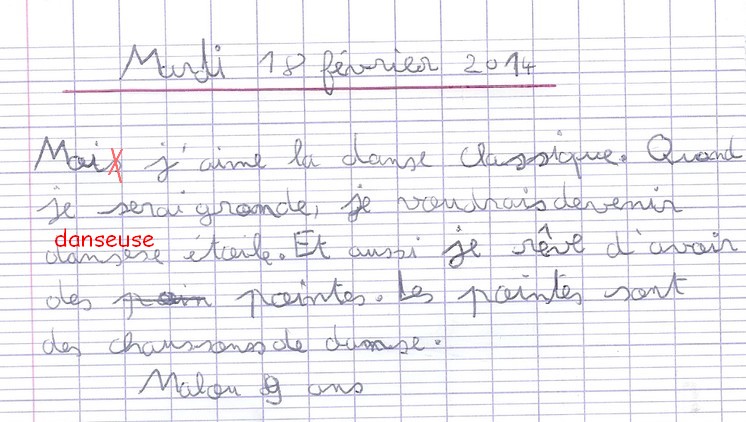 Mardi 18 février 2014
Moi j'aime la danse classique. Quand
je serai grande, je voudrais devenir
danseuse
dansese étoile. Et aussi je rêve d'avoir
des poin pointes. Les pointes sont
des chaussons de danse.
Malou 9 ans